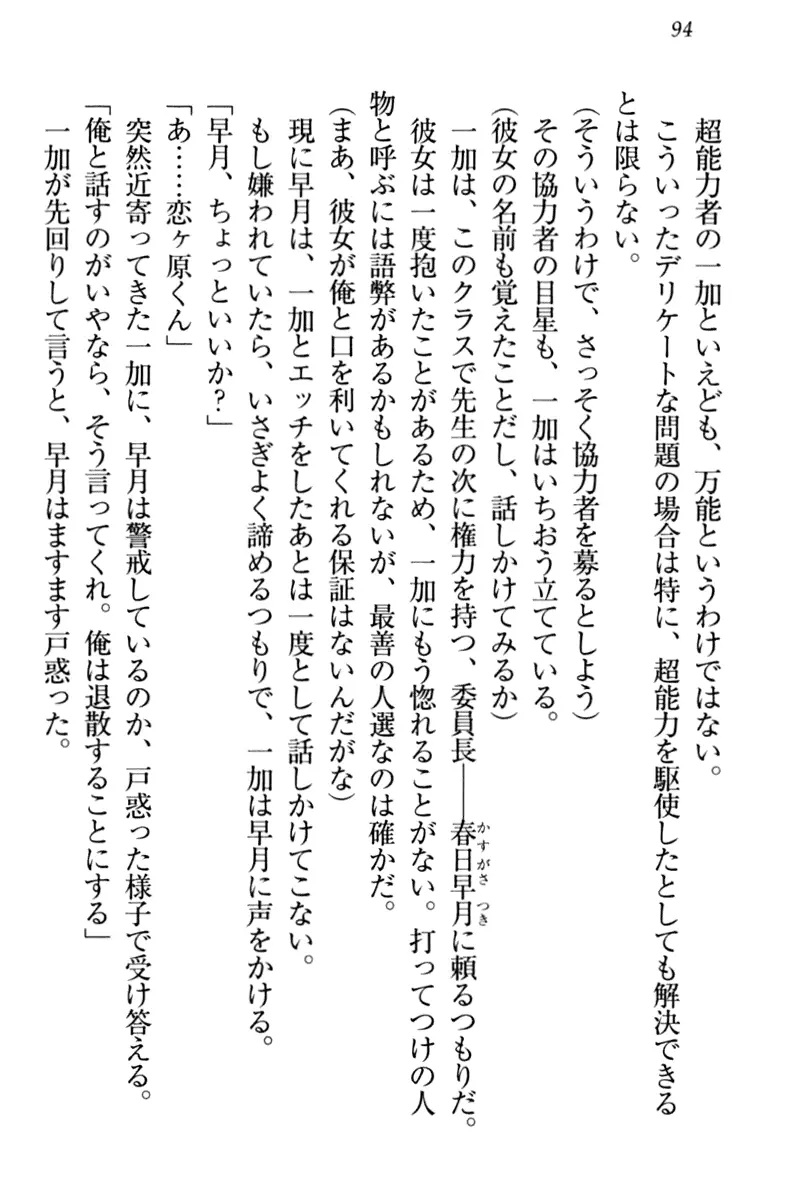 94
超能力者の一加といえども、万能というわけではない。
こういったデリケートな問題の場合は特に、超能力を駆使したとしても解決できる
とは限らない。
(そういうわけで、さっそく協力者を募るとしよう)
その協力者の目星も、一加はいちおう立てている。
(彼女の名前も覚えたことだし、話しかけてみるか)
一加は、このクラスで先生の次に権力を持つ、委員長――春日早月に頼るつもりだ。
かすがさつき
彼女は一度抱いたことがあるため、一加にもう惚れることがない。打ってつけの人
物と呼ぶには語弊があるかもしれないが、最善の人選なのは確かだ。
(まあ、彼女が俺と口を利いてくれる保証はないんだがな)
現に早月は、一加とエッチをしたあとは一度として話しかけてこない。
もし嫌われていたら、いさぎよく諦めるつもりで、一加は早月に声をかける。
「早月、ちょっといいか?」
「あ……恋ヶ原くん」
突然近寄ってきた一加に、早月は警戒しているのか、戸惑った様子で受け答える。
「俺と話すのがいやなら、そう言ってくれ。俺は退散することにする」
一加が先回りして言うと、早月はますます戸惑った。